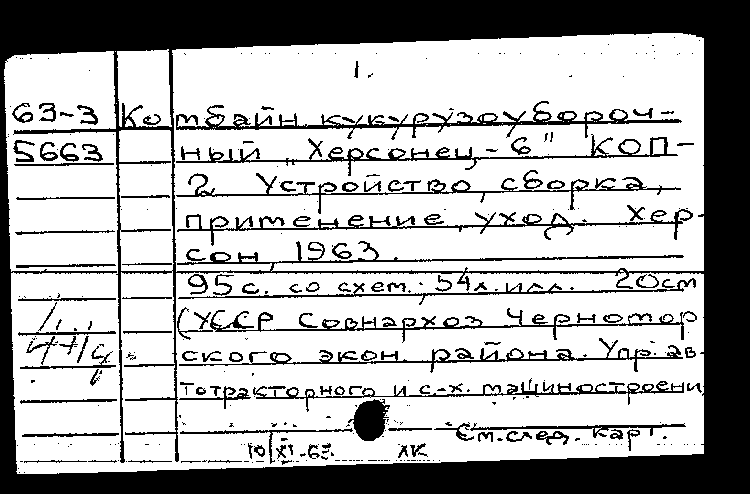 1.
63-3 Комбайн кукурузоубороч-
5663 ный „Херсонец-6" КОП-
2 Устройство, сборка,
применение, уход. Хер-
сон, 1963.
95с. со схем.; 54л. илл. 20см
(УССР Совнархоз Черномор
ского экон. района. Упр. ав-
тотракторного и с-х. машиностроени
См. след. карт.
10/XI-63. ХК